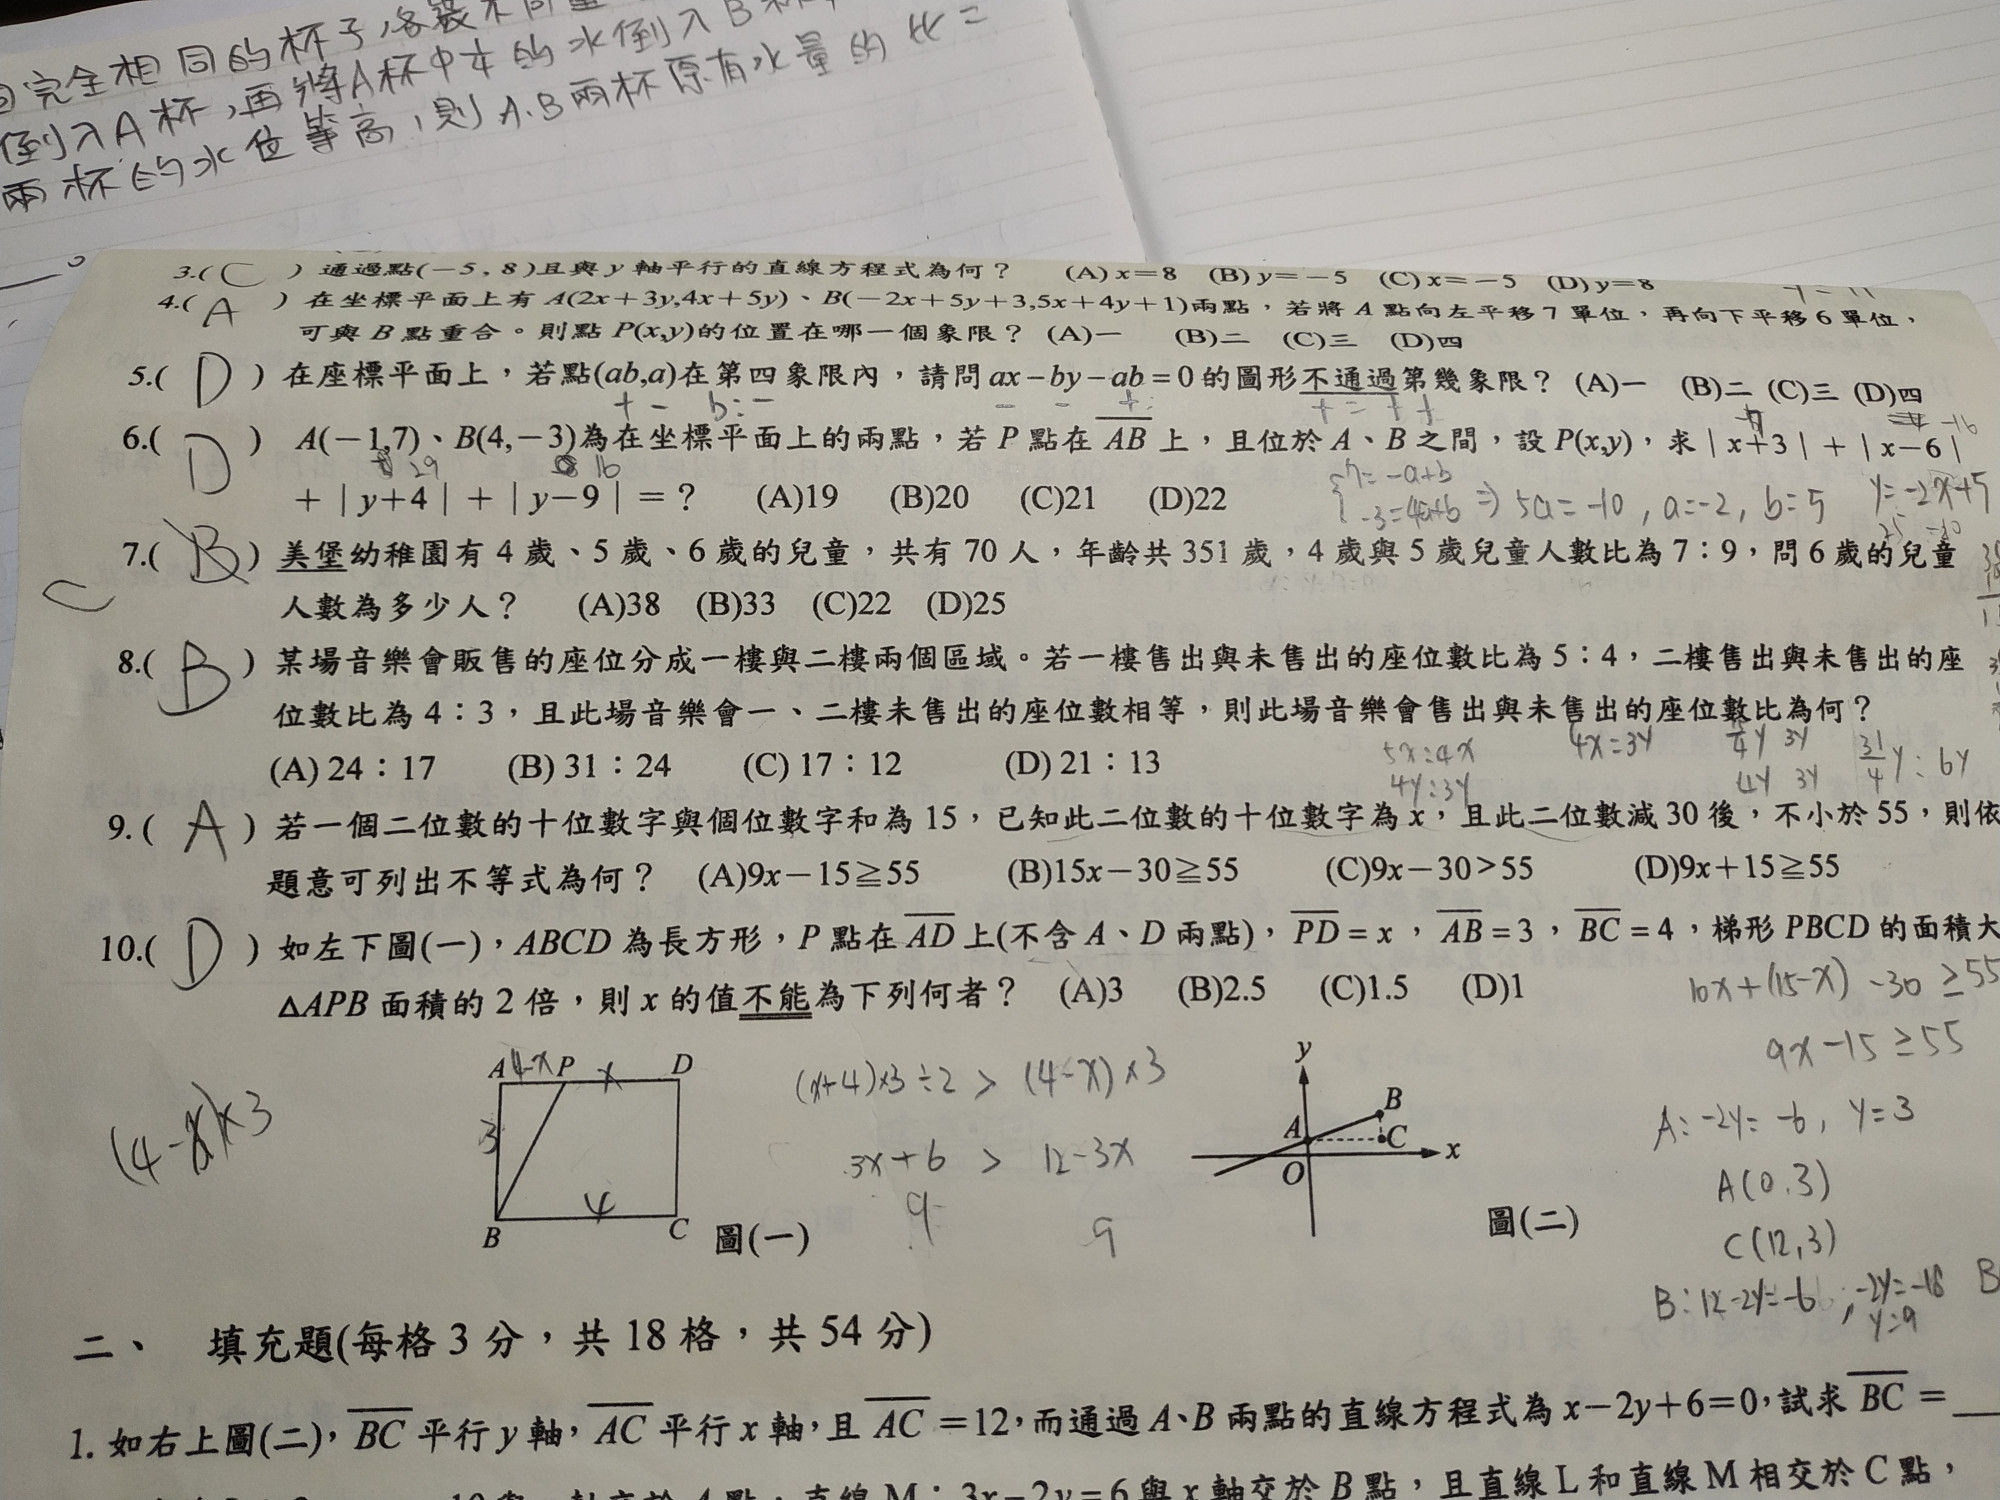 完全相同的杯子,各裝不同量
倒入A杯,再將A杯中 的水倒入B杯
兩杯的水位等高,則A.B兩杯原有水量的比=
3.( C ) 通過點(-5,8)且與 y 軸平行的直線方程式為何? (A) x=8 (B) y=-5 (C) x=-5 (D) y=8
4.( A ) 在坐標平面上有 A(2x+3y,4x+5y)、B(-2x+5y+3,5x+4y+1)兩點,若將 A 點向左平移 7 單位,再向下平移 6 單位,
可與 B 點重合。則點 P(x,y)的位置在哪一個象限? (A)一 (B)二 (C)三 (D)四
5.( D ) 在座標平面上,若點(ab,a)在第四象限內,請問 ax-by-ab=0 的圖形不通過第幾象限? (A)一 (B)二 (C)三 (D)四
+ - b:-
6.( D ) A(-1,7)、B(4,-3)為在坐標平面上的兩點,若 P 點在 AB 上,且位於 A、B 之間,設 P(x,y),求|x+3|+|x-6|
+|y+4|+|y-9|=? (A)19 (B)20 (C)21 (D)22
7=-a+b
-3=4a+b ⇒ 5a=-10, a=-2, b=5 y=-2x+5
7.( B ) 美堡幼稚園有 4 歲、5 歲、6 歲的兒童,共有 70 人,年齡共 351 歲,4 歲與 5 歲兒童人數比為 7:9,問 6 歲的兒童
C
人數為多少人? (A)38 (B)33 (C)22 (D)25
8.( B ) 某場音樂會販售的座位分成一樓與二樓兩個區域。若一樓售出與未售出的座位數比為 5:4,二樓售出與未售出的座
位數比為 4:3,且此場音樂會一、二樓未售出的座位數相等,則此場音樂會售出與未售出的座位數比為何?
(A) 24:17 (B) 31:24 (C) 17:12 (D) 21:13
5x:4x 4x=3y 3y 31/4 y:6y
4y:3y 4y 3y
9.( A ) 若一個二位數的十位數字與個位數字和為 15,已知此二位數的十位數字為 x,且此二位數減 30 後,不小於 55,則依
題意可列出不等式為何? (A)9x-15≧55 (B)15x-30≧55 (C)9x-30>55 (D)9x+15≧55
10.( D ) 如左下圖(一),ABCD 為長方形,P 點在 AD 上(不含 A、D 兩點),PD=x,AB=3,BC=4,梯形 PBCD 的面積大
△APB 面積的 2 倍,則 x 的值不能為下列何者? (A)3 (B)2.5 (C)1.5 (D)1
10x+(15-x)-30≥55
9x-15≥55
A 4-x P x D
3
4
B C
圖(一)
(4-x)×3
(x+4)×3÷2 > (4-x)×3
3x+6 > 12-3x
9 9
y
B
A C
x
O
圖(二)
A:-2y=-6, y=3
A(0,3)
C(12,3)
B:12-2y=-6, -2y=-18
y=9
B
二、 填充題(每格 3 分,共 18 格,共 54 分)
1. 如右上圖(二),BC 平行 y 軸,AC 平行 x 軸,且 AC =12,而通過 A、B 兩點的直線方程式為 x-2y+6=0,試求 BC =
A 點,直線 M:3x-2y=6 與 x 軸交於 B 點,且直線 L 和直線 M 相交於 C 點,